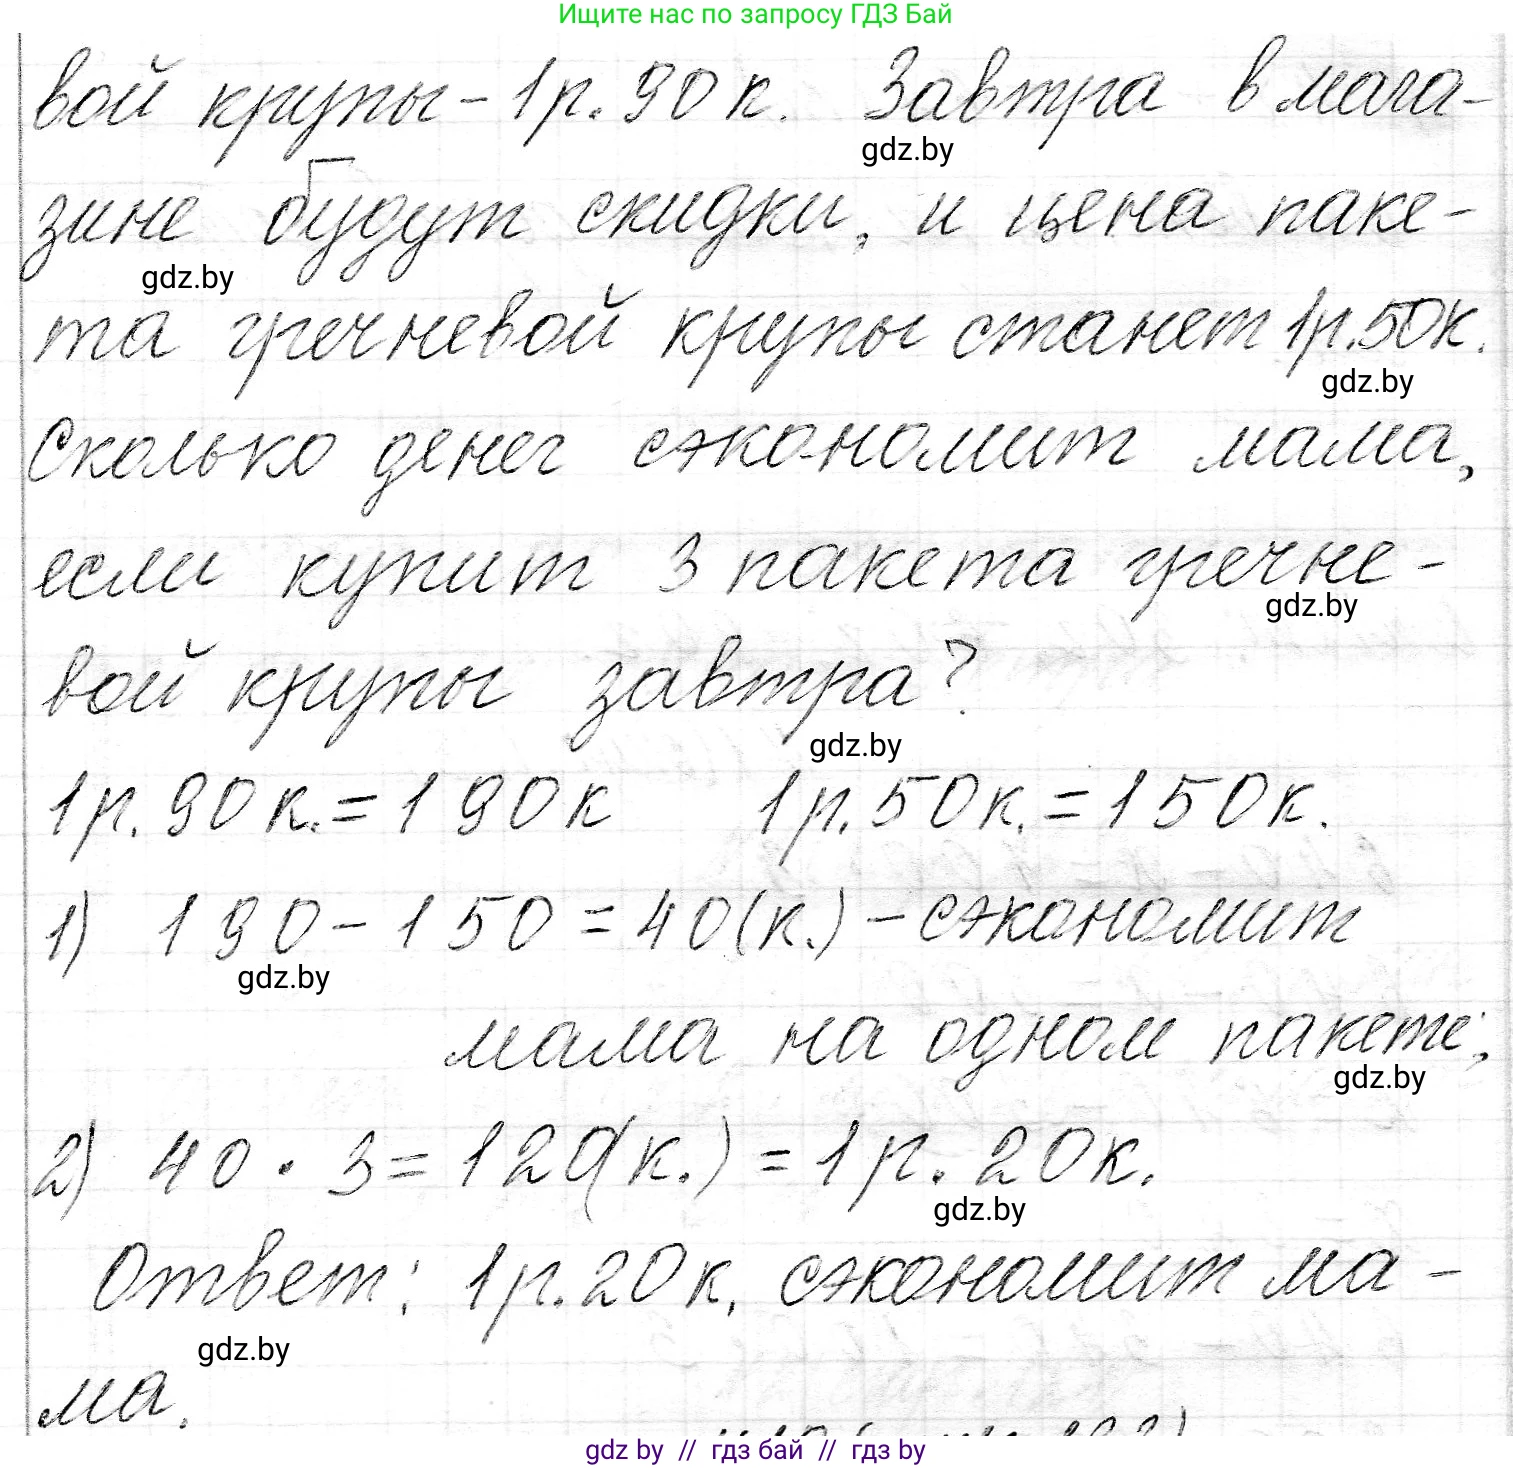 Ищите нас по запросу ГДЗ Бай
вой крупы - 1 р. 90 к. Завтра в мага-
gdz.by
зине будут скидки, и цена паке-
gdz.by
та гречневой крупы станет 1 р. 50 к.
gdz.by
Сколько денег сэкономит мама,
если купит 3 пакета гречне-
gdz.by
вой крупы завтра?
gdz.by
1 р. 90 к. = 190 к 1 р. 50 к. = 150 к.
1) 190 - 150 = 40 (к.) - сэкономит
gdz.by
мама на одном пакете;
gdz.by
2) 40 · 3 = 120 (к.) = 1 р. 20 к.
gdz.by
Ответ: 1 р. 20 к. сэкономит ма-
gdz.by
ма.
gdz by // гдз бай // гдз by